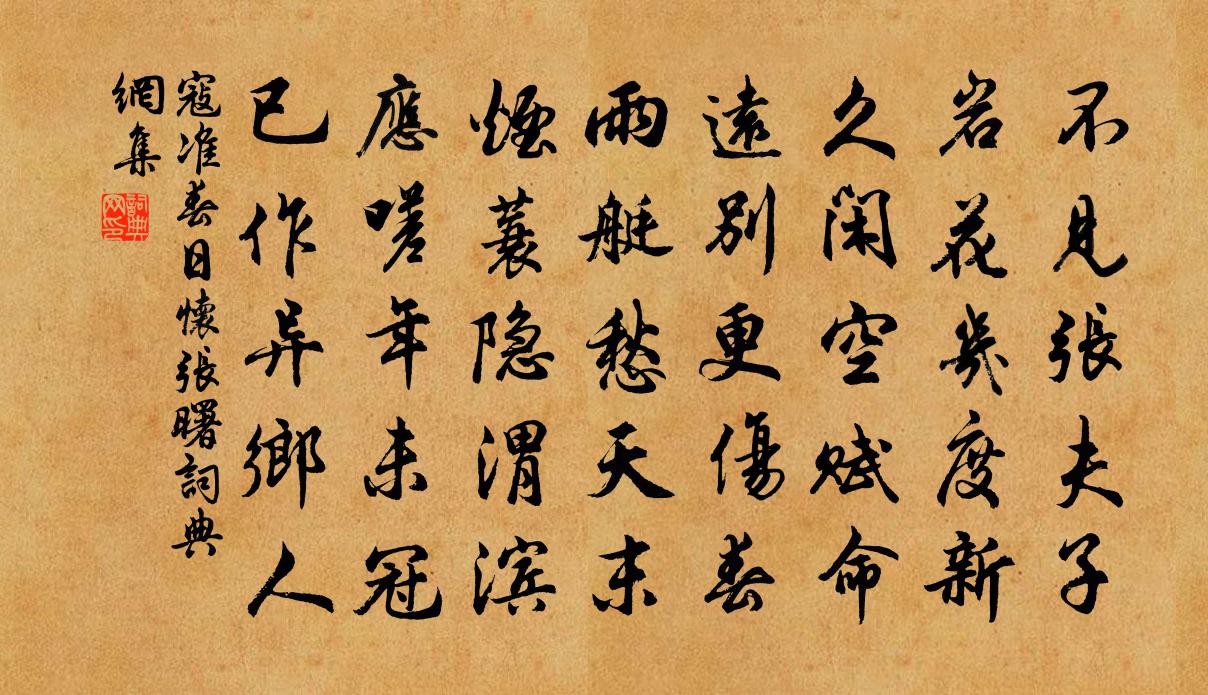 不見張夫子
岩花幾度新
久閑空賦命
遠別更傷春
雨艇愁天末
煙蓑隐渭滨
應嗟年未冠
已作异鄉人
寇准春日懷張曙詞典
網集
詞典
网印